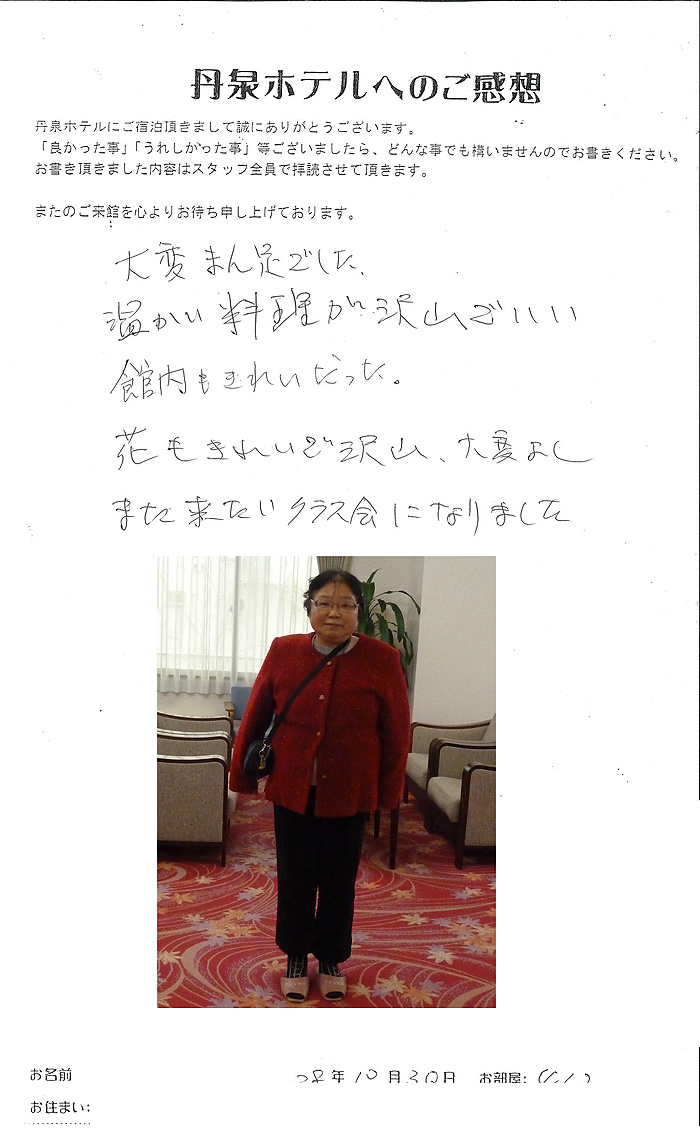 丹泉ホテルへのご感想
丹泉ホテルにご宿泊頂きまして誠にありがとうございます。
「良かった事」「うれしかった事」等ございましたら、どんな事でも構いませんのでお書きください。
お書き頂きました内容はスタッフ全員で拝読させて頂きます。
またのご来館を心よりお待ち申し上げております。
大変まん足でした、
温かい料理が沢山でいい
館内もきれいだった。
花もきれいで沢山、大変よし
また来たいクラス会になりました
お名前
年10月30日 お部屋:
お住まい: